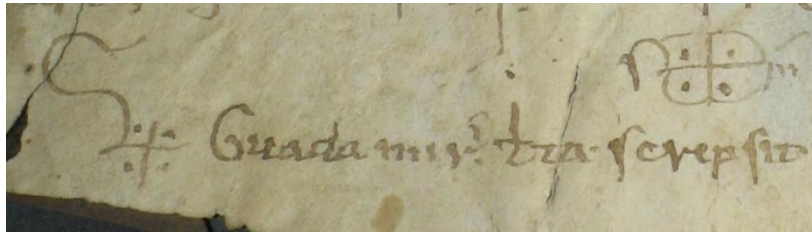 Guada mirꝰ tra screpsit